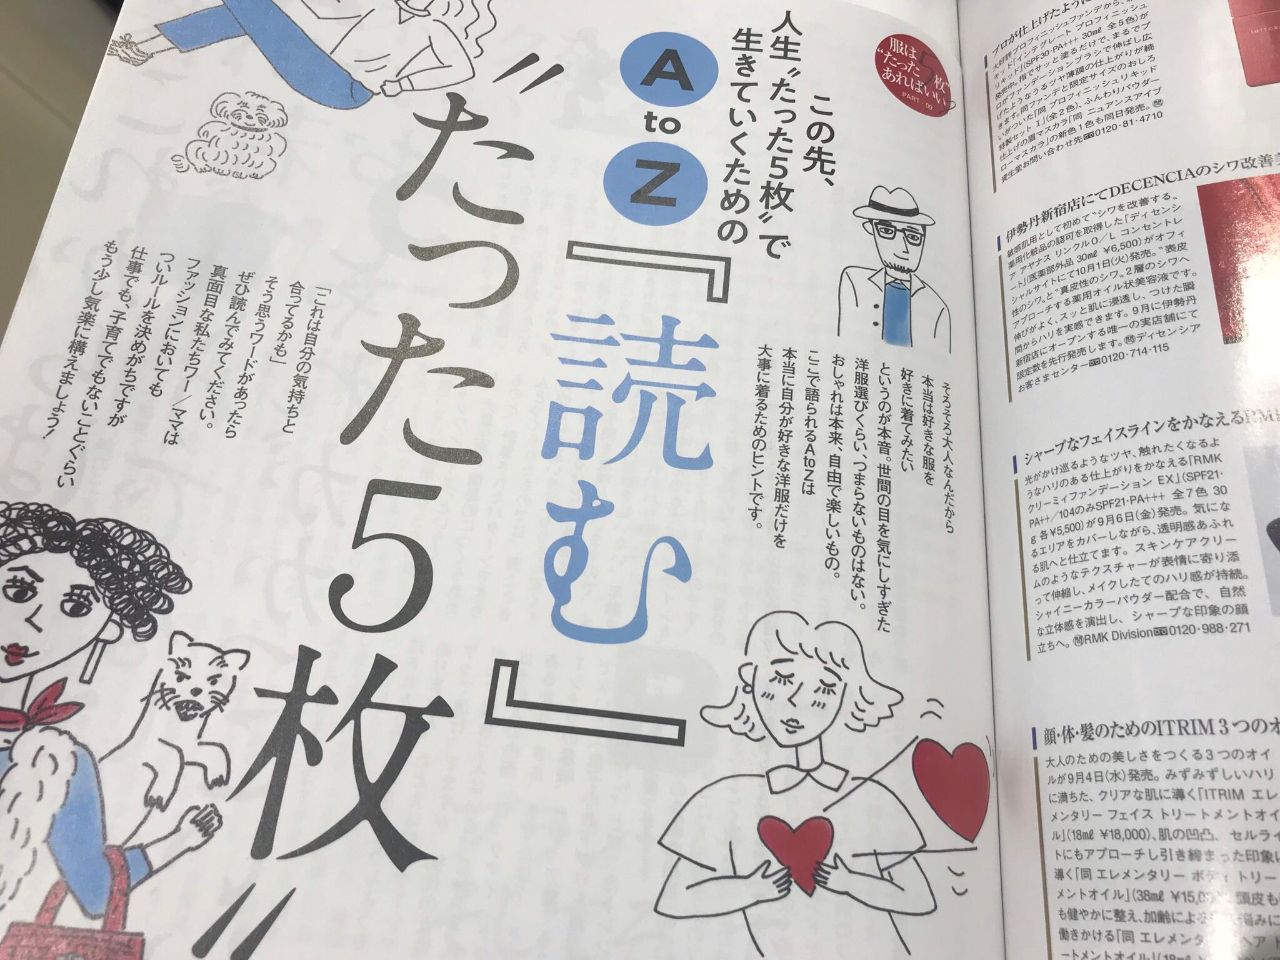 服は
“たった5枚”
あればいい
PART : 09
この先、
人生〝たった5枚〟で
生きていくための
A to Z
『読む』
〝たった5枚〟
そろそろ大人なんだから
本当は好きな服を
好きに着てみたい
というのが本音。世間の目を気にしすぎた
洋服選びくらい、つまらないものはない。
おしゃれは本来、自由で楽しいもの。
ここで語られるAtoZは
本当に自分が好きな洋服だけを
大事に着るためのヒントです。
「これは自分の気持ちと
合ってるかも」
そう思うワードがあったら
ぜひ読んでみてください。
真面目な私たちワー／ママは
ファッションにおいても
ついルールを決めがちですが
仕事でも、子育てでもないことぐらい
もう少し気楽に構えましょう！
プロが仕上げたように
ローマスカラ」の新色1色も同日発売。
資生堂お問い合わせ先 0120・81・4710
伊勢丹新宿店にてDECENCIAのシワ改善
敏感肌用として初めて“シワを改善する、
薬用化粧品の認可を取得した「ディセンシ
ア アヤナス リンクルO/L コンセントレ
ート」(医薬部外品 30㎖ ¥6,500)がオフィ
シャルサイトにて10月1日(火)発売。“表皮
性のシワ„と“真皮性のシワ„2層のシワへ
アプローチする薬用オイル状美容液です。
伸びがよく、スッと肌に浸透し、つけた瞬
間からハリを実感できます。9月に伊勢丹
新宿店にオープンする唯一の実店舗にて
限定数を先行発売します。㉄ディセンシア
お客さまセンター 0120・714・115
シャープなフェイスラインをかなえるRM
光がかけ巡るようなツヤ、触れたくなるよ
うなハリのある仕上がりをかなえる「RMK
クリーミィファンデーション EX」(SPF21・
PA++/104のみSPF21・PA+++ 全7色 30
g 各¥5,500)が9月6日(金)発売。気にな
るエリアをカバーしながら、透明感あふれ
る肌へと仕立てます。スキンケアクリー
ムのようなテクスチャーが表情に寄り添
って伸縮し、メイクしたてのハリ感が持続。
シャイニーカラーパウダー配合で、自然
な立体感を演出し、シャープな印象の顔
立ちへ。㉄RMK Division 0120・988・271
顔・体・髪のためのITRIM 3つのオ
大人のための美しさをつくる3つのオイ
ルが9月4日(水)発売。みずみずしいハリ
に満ちた、クリアな肌に導く「ITRIM エレ
メンタリー フェイス トリートメントオイ
ル」(18㎖ ¥18,000)、肌の凹凸、セルライ
トにもアプローチし引き締まった印象に
導く「同 エレメンタリー ボディ トリー
メントオイル」(38㎖ ¥15,0
も健やかに整え、加齢による
働きかける「同 エレメンタ